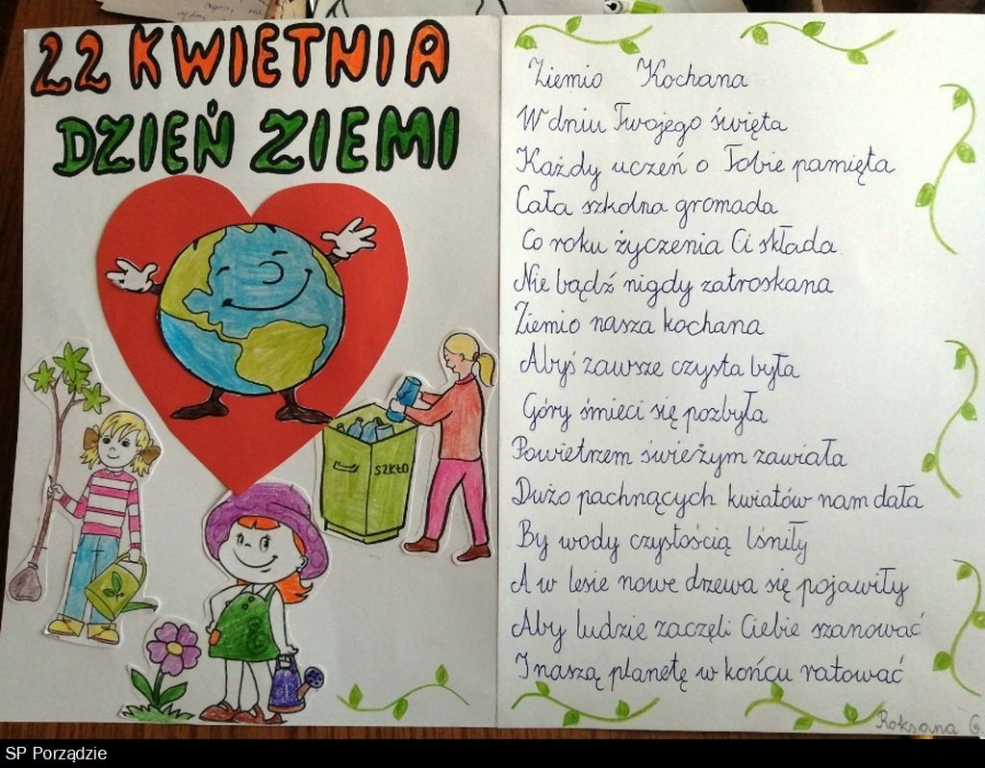 22 KWIETNIA
DZIEŃ ZIEMI
SZKŁO
Ziemio Kochana
W dniu Twojego święta
Każdy uczeń o Tobie pamięta
Cała szkolna gromada
Co roku życzenia Ci składa
Nie bądź nigdy zatroskana
Ziemio nasza kochana
Abyś zawsze czysta była
Góry śmieci się pozbyła
Powietrzem świeżym zawiała
Dużo pachnących kwiatów nam dała
By wody czystością lśniły
A w lesie nowe drzewa się pojawiły
Aby ludzie zaczęli Ciebie szanować
I naszą planetę w końcu ratować
Roksana G.
SP Porządzie